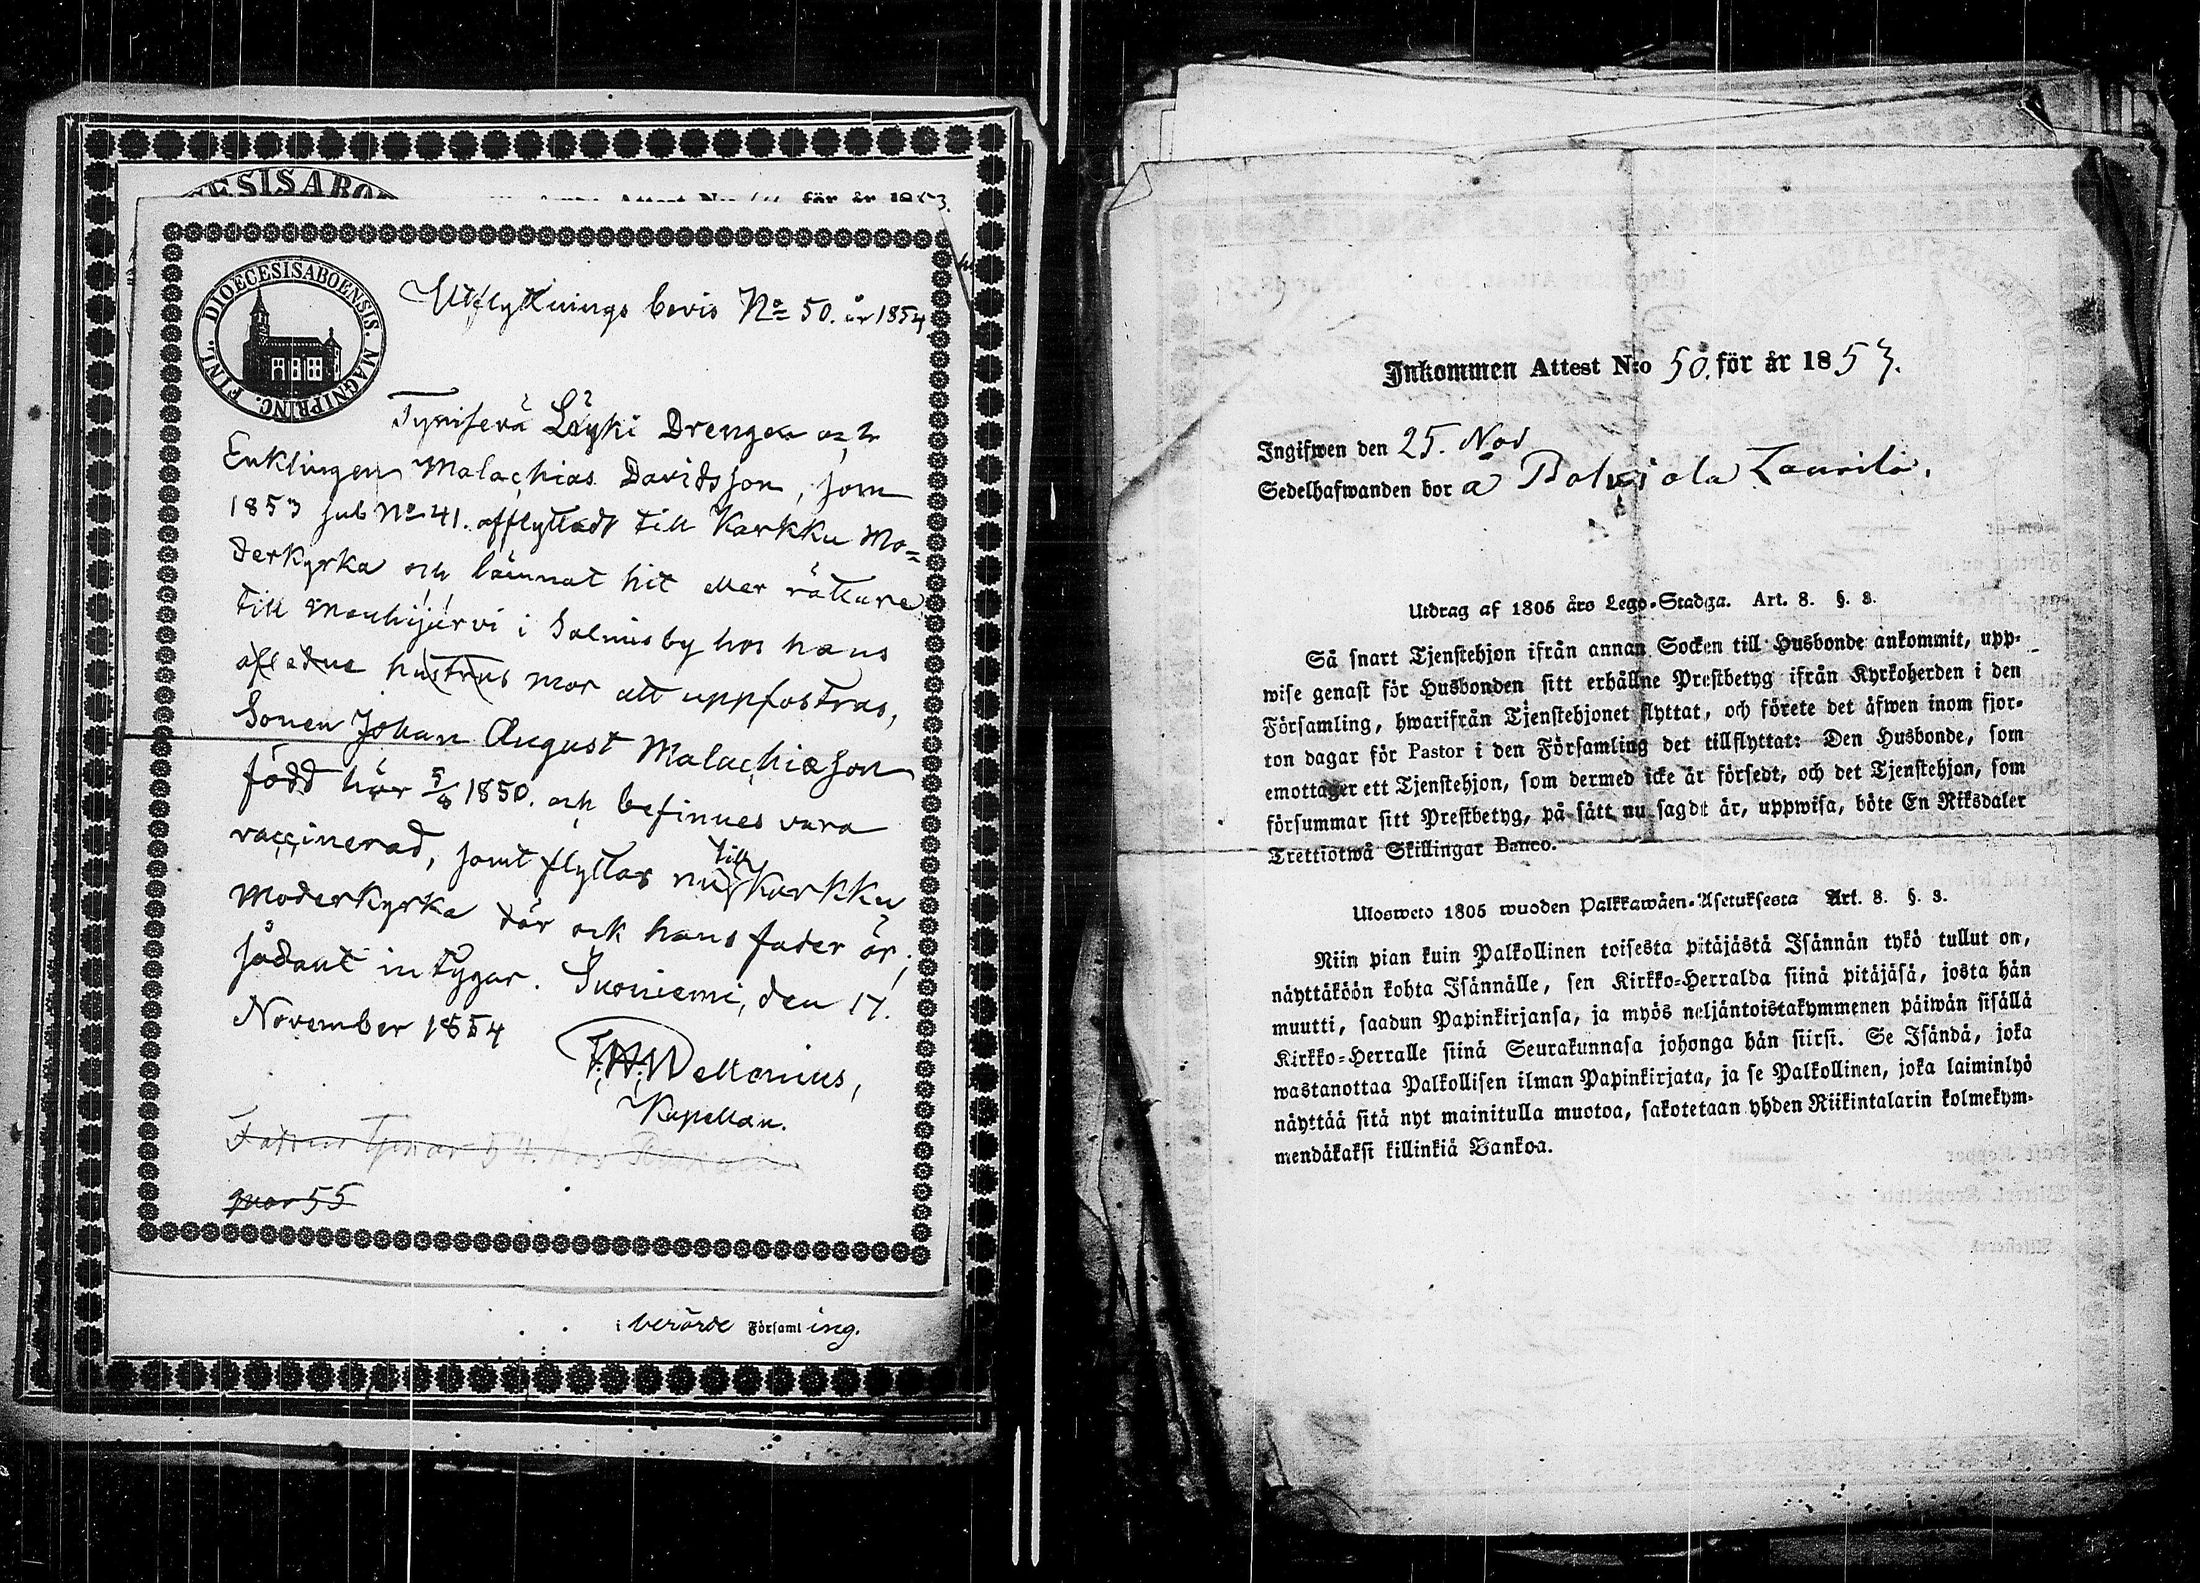 DIOECESIS ABO
Attest N:o för år 1853.
FINL. DIOECESIS ABOENSIS. MAGNI PRINC.
Utflyttnings bevis No 50. år 1854
Tyrisevä Löyki Drengen och
Enklingen Malachias Davidsson, som
1853 sub No 41. afflyttadt till Karkku Mo=
derkyrka och lämnat hit eller rättare
till Mouhijärvi i Salmis by hos hans
afledne hustrus mor att uppfostras,
Sonen Johan August Malachiasson
född här 5/8 1850. och befinnes vara
vaccinerad, samt flyttar nu till Karkku
moderkyrka där ock hans fader är;
sådant intygar. Suoniemi, den 17.
November 1854
F. W. Wellonius,
Kapellan.
Fadren tjenar 54. hos
qvar 55
i berörde Församling.
Inkommen Attest N:o 50. för år 1853.
Ingifwen den 25. Nov
Sedelhafwanden bor å Laurila.
Utdrag af 1805 års Lego-Stadga. Art. 8. §. 3.
Så snart Tjenstehjon ifrån annan Socken till Husbonde ankommit, upp-
wise genast för Husbonden sitt erhållne Prestbetyg ifrån Kyrkoherden i den
Församling, hwarifrån Tjenstehjonet flyttat, och förete det äfwen inom fjor-
ton dagar för Pastor i den Församling det tillflyttat: Den Husbonde, som
emottager ett Tjenstehjon, som dermed icke är försedt, och det Tjenstehjon, som
försummar sitt Prestbetyg, på sätt nu sagdt är, uppwisa, böte En Riksdaler
Trettiotwå Skillingar Banco.
Ulosweto 1805 wuoden Palkkawäen-Asetuksesta Art. 8. §. 3.
Niin pian kuin Palkollinen toisesta pitäjästä Isännän tykö tullut on,
näyttäköön kohta Isännälle, sen Kirkko-Herralda siinä pitäjäsä, josta hän
muutti, saadun Papinkirjansa, ja myös neljäntoistakymmenen päiwän sisällä
Kirkko-Herralle siinä Seurakunnasa johonga hän siirsi. Se Isändä, joka
wastanottaa Palkollisen ilman Papinkirjata, ja se Palkollinen, joka laiminlyö
näyttää sitä nyt mainitulla muotoa, sakotetaan yhden Riikintalarin kolmekym-
mendäkaksi killinkiä Bankoa.